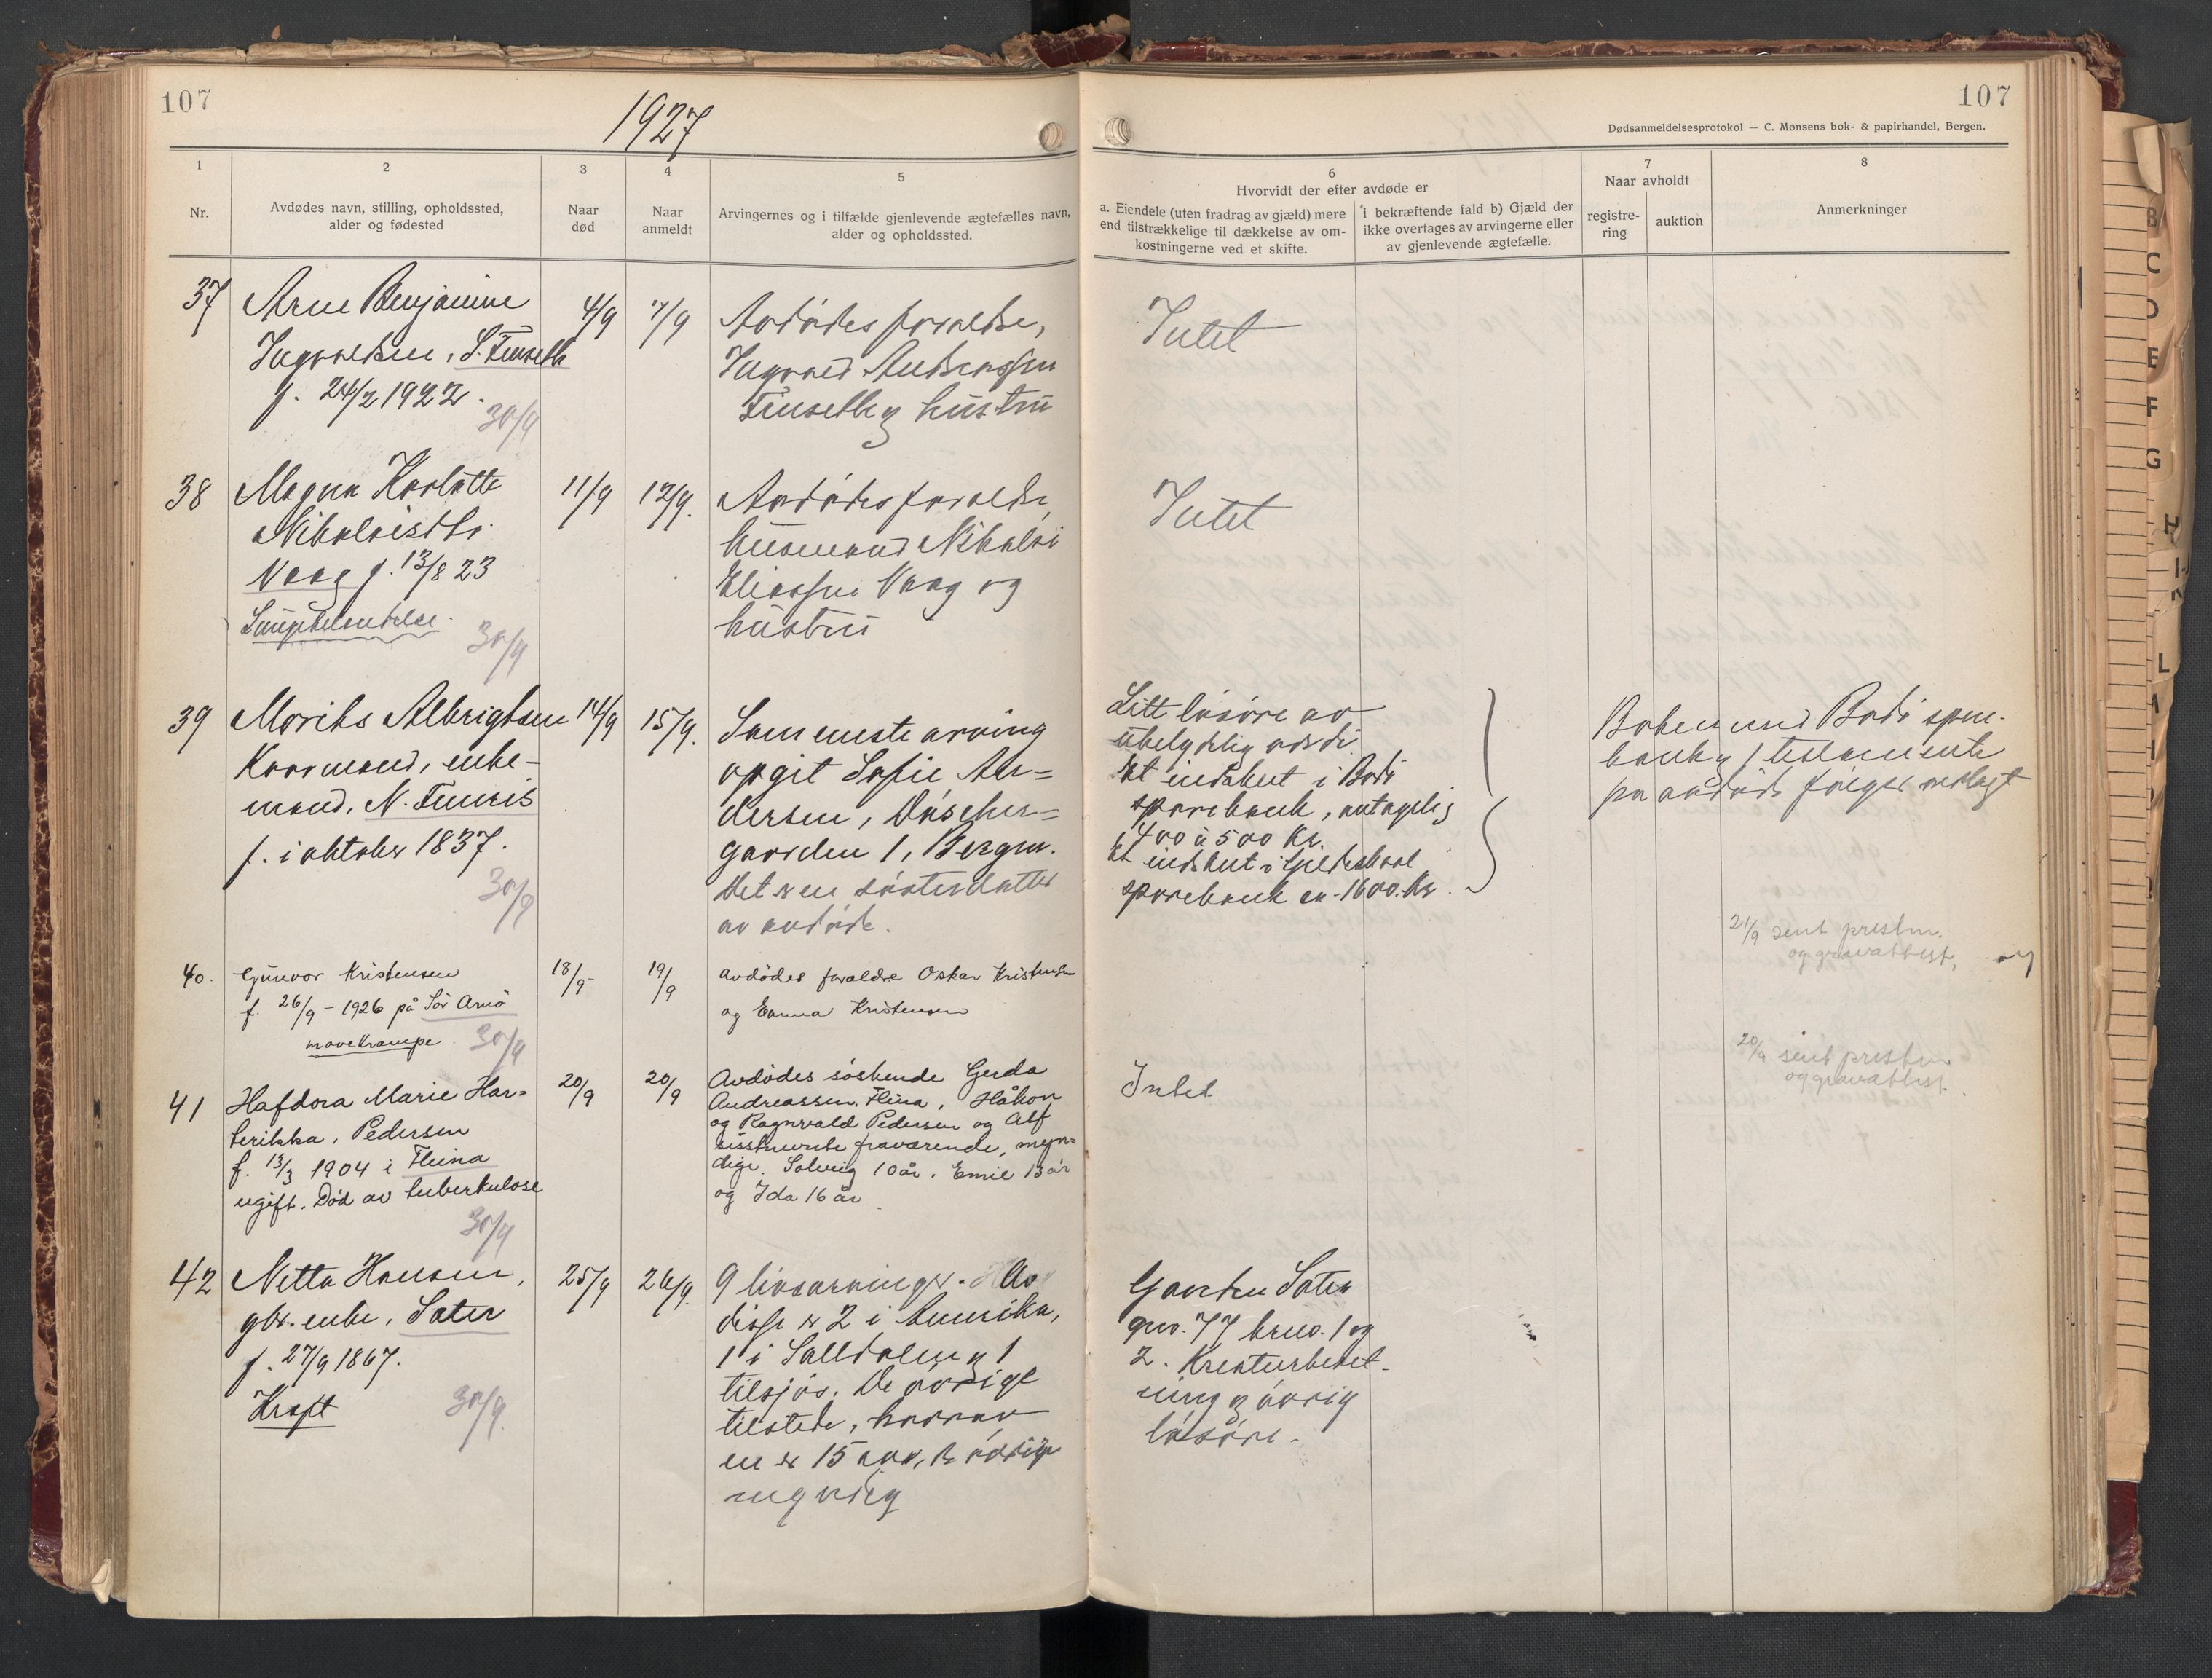 107
1927
107
Dødsanmeldelsesprotokol — C. Monsens bok- & papirhandel, Bergen.
1
2
3
4
5
6
7
8
Nr.
Avdødes navn, stilling, opholdssted,
alder og fødested
Naar
død
Naar
anmeldt
Arvingernes og i tilfælde gjenlevende ægtefælles navn,
alder og opholdssted.
Hvorvidt der efter avdøde er
a. Eiendele (uten fradrag av gjæld) mere
end tilstrækkelige til dækkelse av om-
kostningerne ved et skifte.
i bekræftende fald b) Gjæld der
ikke overtages av arvingerne eller
av gjenlevende ægtefælle.
Naar avholdt
registre-
ring
auktion
Anmerkninger
37
Arne Benjamine
Ingvaldsen, S.
f. 24/2 1922.
30/9
4/9
7/9
Avdødes forældre,
Ingvald Anderssen
og hustru
Intet
38
Magna Karlotte
Nikolaisdtr.
Vaag f. 13/8 23
30/9
11/9
12/9.
Avdødes forældre,
husmand Nikolai
Eliassen Vaag og
hustru
Intet
39
Morits Albrigtsen
Kaarmand, enke-
mand, N.
f. i oktober 1837.
30/9
14/9
15/9.
Som eneste arving
opgit Sofie An=
dersen,
gaarden 1, Bergen.
Det er en søsterdatter
av avdøde.
Litt løsøre av
ubetydelig værdi
Et indskut i Bodø
sparebank, antagelig
400 à 500 Kr.
Et indskut i Gildeskaal
sparebank ca. 1600.- Kr.
Boken med Bodø spare-
bank og testamente
fra avdøde følger vedlagt
40.
Gunvor Kristensen
f. 26/9 - 1926 på Sør Arnö
mavekrampe
30/9
18/9
19/9
avdödes foraldre Oskar Kristensen
og Emma Kristensen
21/9 sendt presten
og gravattest,
41
Hafdora Marie Har-
terikka, Pedersen
f. 13/3 1904 i Fleina
ugift. Död av tuberkulose
30/9
20/9
20/9
Avdödes söskende Gerda
Andreassen, Fleina, Håkon
og Ragnvald Pedersen og Alf
sisstnevnte fraværende, myn=
dige. Solveig 10 år, Emil 13 år
og Ida 16 år
Intet
20/9 sendt presten
og gravattest.
42
Nitta Hansen,
gbr. enke, Sater
f. 27/9 1867.
Kraft
30/9.
25/9
26/9.
9 livsarvinger. Av
disse er 2 i Amerika,
1 i Saltdalen og 1
tilsjøs. De øvrige
tilstede, hvorav
en er 15 aar, de øvrige
myndig
Gaarden Sater
gno. 77 bruno. 1 og
2. Kreaturbeset-
ning og øvrig
løsøre.
B
C
D
E
F
G
H
L